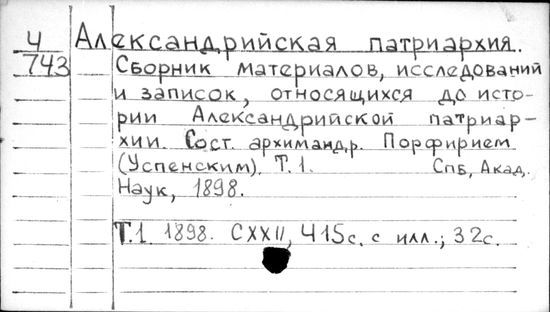 Ч Александрийская патриархия.
743 Сборник материалов, исследований
и записок, относящихся до исто-
рии Александрийской патриар-
хии. Сост. архимандр. Порфирием.
(Успенским). Т.1. Спб, Акад.
Наук, 1898.
Т.1. 1898. CXXII, 415с. с илл.; 32с.